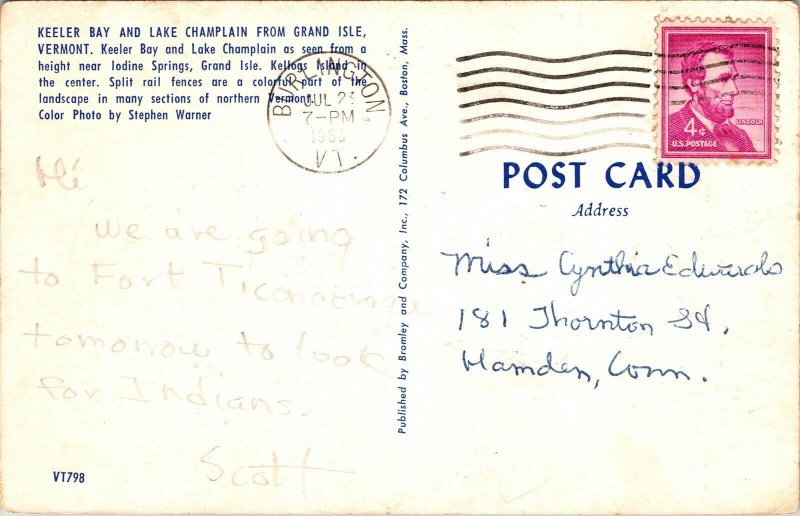 KEELER BAY AND LAKE CHAMPLAIN FROM GRAND ISLE,
VERMONT. Keeler Bay and Lake Champlain as seen from a
height near Iodine Springs, Grand Isle. Kellogs Island in
the center. Split rail fences are a colorful part of the
landscape in many sections of northern Vermont.
Color Photo by Stephen Warner
Hi
We are going
to Fort Ticonderoga
tomorrow to look
for Indians.
Scott
VT798
Published by Bromley and Company, Inc., 172 Columbus Ave., Boston, Mass.
BURLINGTON
JUL 23
7-PM
1963
VT.
LINCOLN
4¢
U.S. POSTAGE
POST CARD
Address
Miss Cynthia Edwards
181 Thornton St.
Hamden, Conn.